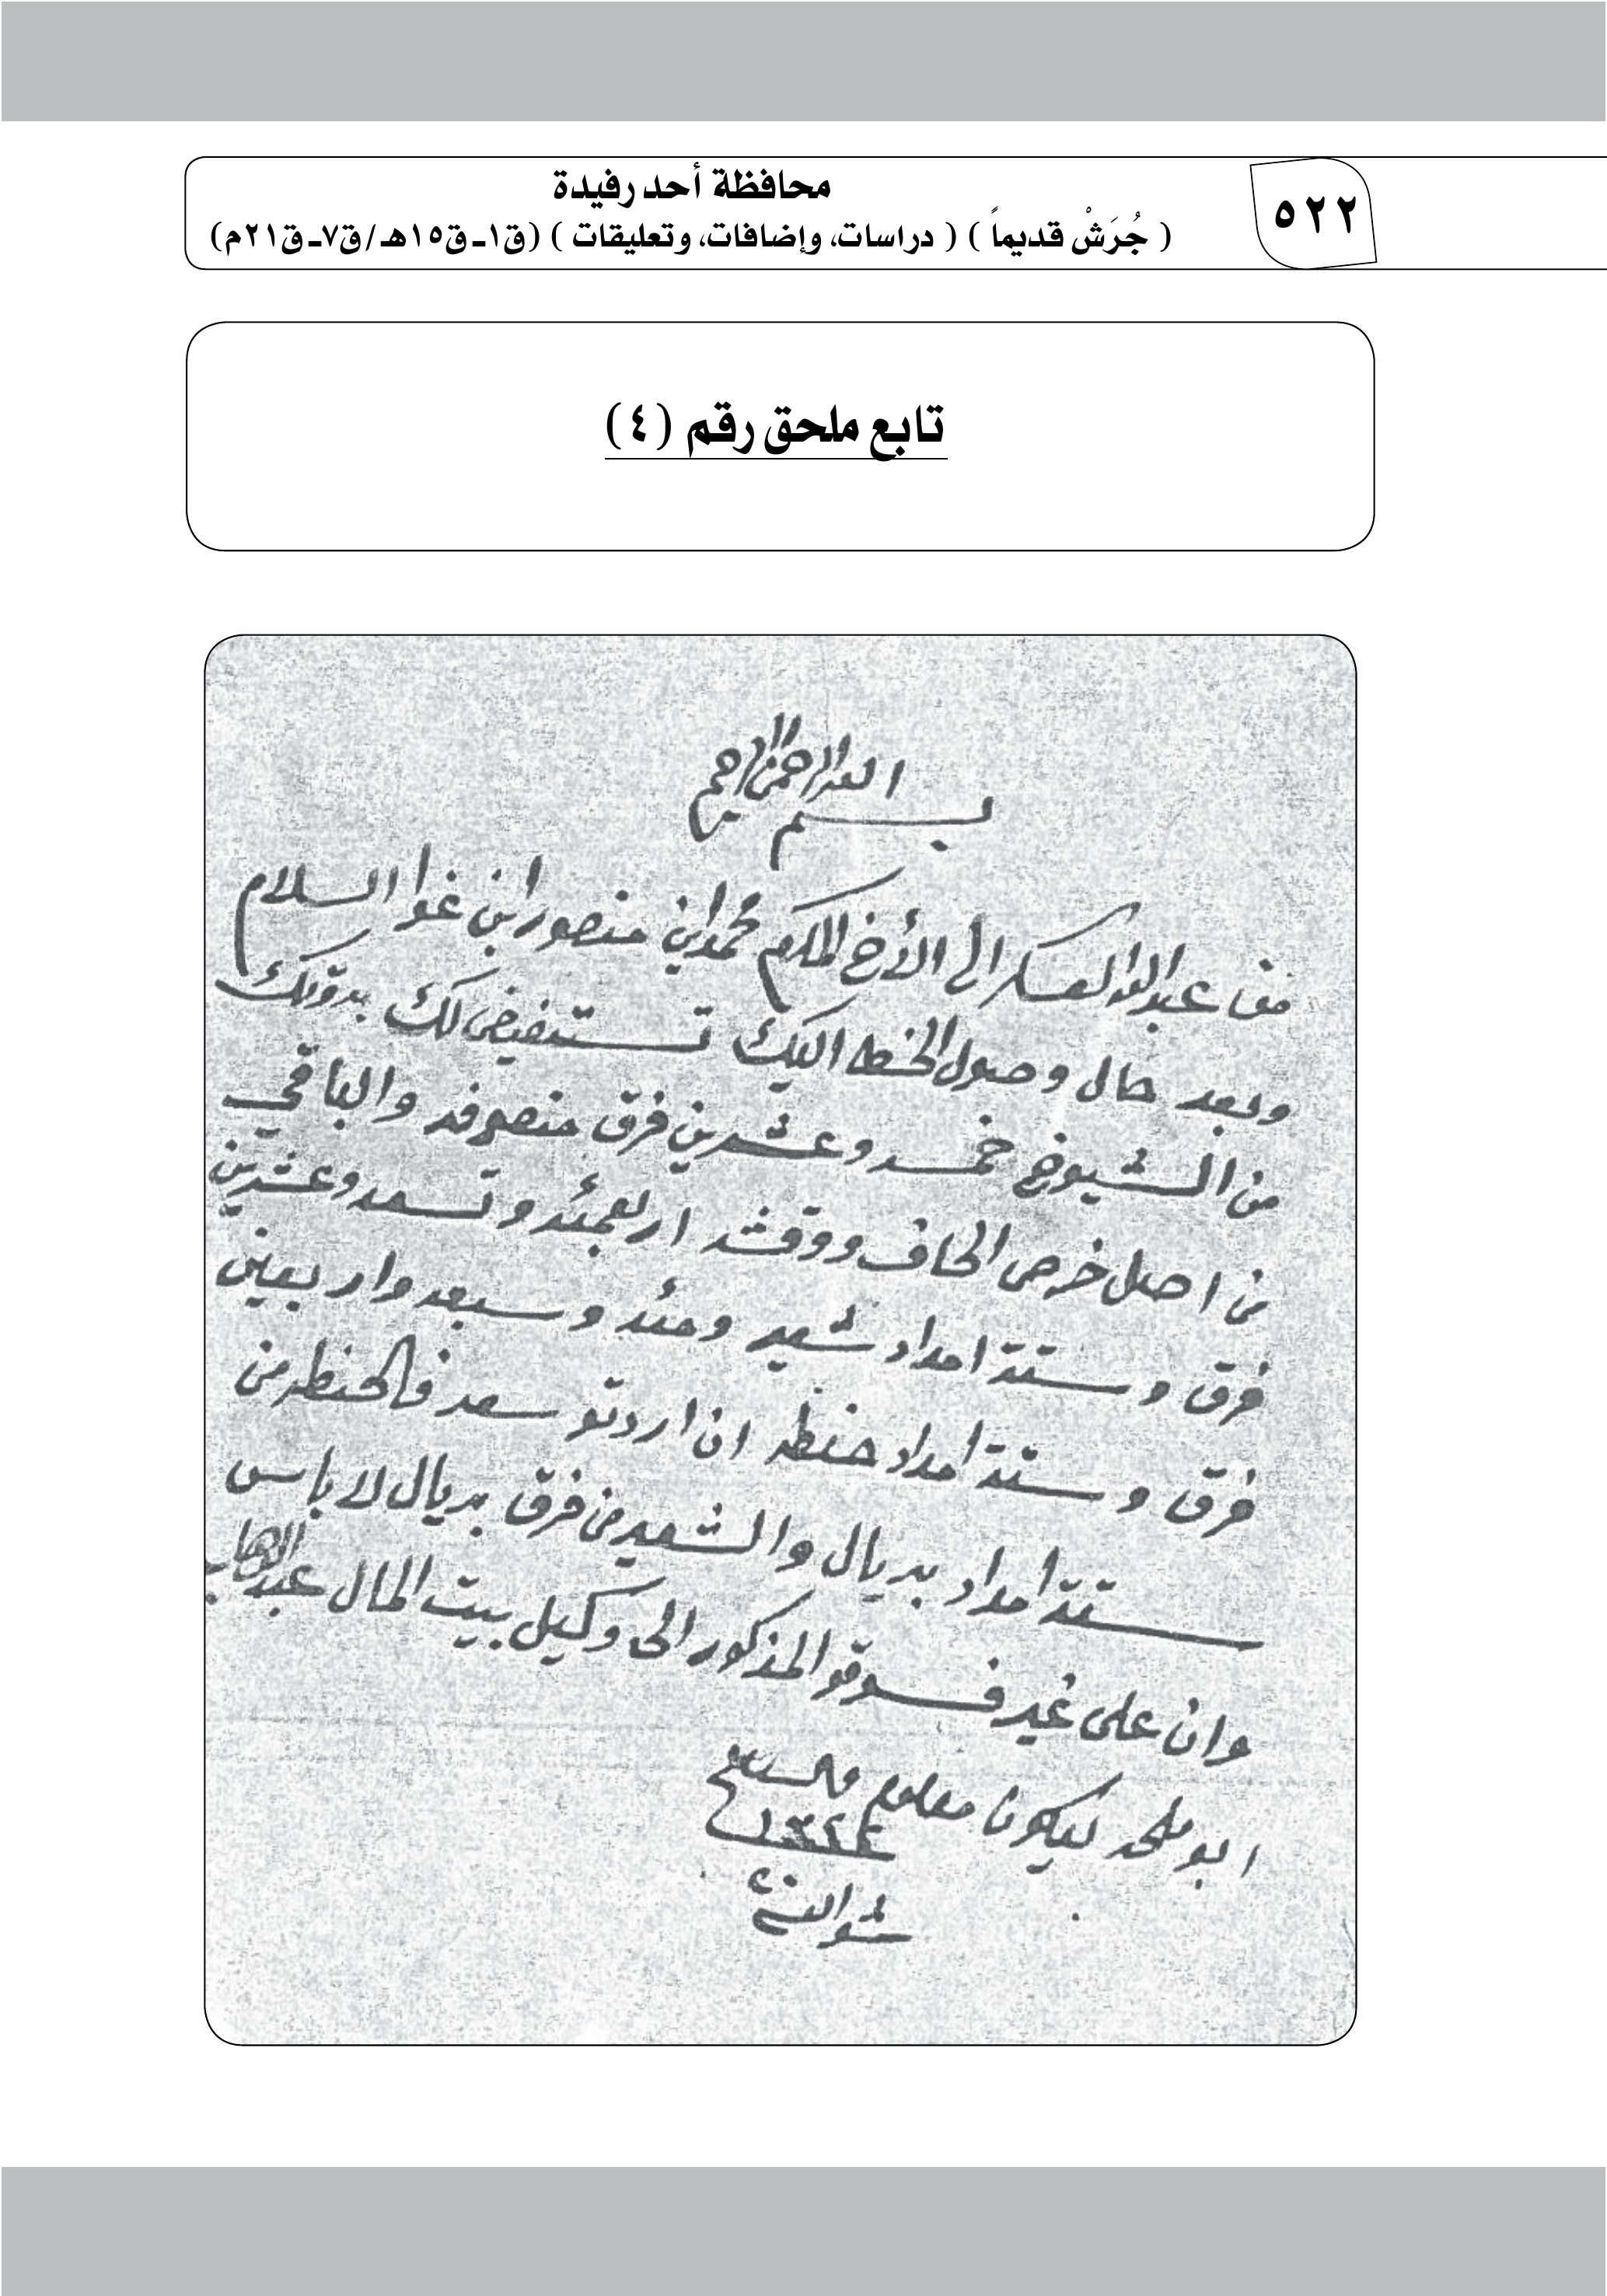 ٥٢٢
محافظة أحد رفيدة
( جُرَشْ قديماً ) ( دراسات، وإضافات، وتعليقات ) (ق١ـ ق١٥هـ /ق٧ـ ق٢١م)
تابع ملحق رقم (٤)
بسم الله الرحمن الرحيم
من عبدالله العسكر الى الأخ المكرم محمد ابن منصور ابن غوا السلام
وبعد حال وصول الخط اليك تستفيض لك بدوتك
من الشيوخ خمسه وعشرين فرق منصوفه والباقي
من اصل خرص الحاف ووقشه اربعمئه وتسعه وعشرين
فرق وستة امداد شعير ومئه وسبعه واربعين
فرق وستة امداد حنطه ان اردتو سعد فالحنطه من
ستة امداد بريال والشعير من فرق بريال لا باس
وان على غير فسوقو المذكور الى وكيل بيت المال عبدالوهاب
ابو ملحه ليكون معلوم والسلام
١٣٤٤
شوال